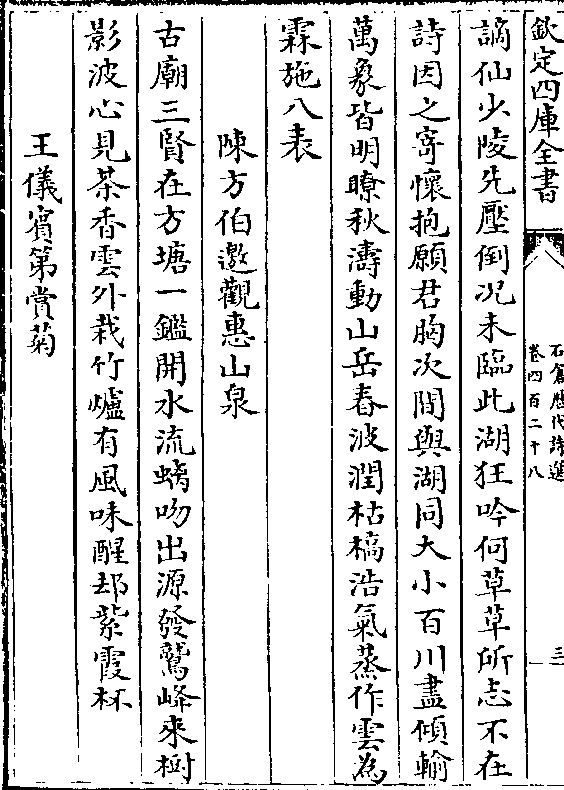 欽定四庫全書
石倉歷代詩選
卷四百二十八
三
謫仙少陵先壓倒况未臨此湖狂吟何草草所志不在
詩因之寄懷抱願君胸次間與湖同大小百川盡傾輸
萬象皆明瞭秋濤動山岳春波潤枯槁浩氣蒸作雲為
霖施八表
陳方伯邀觀惠山泉
古廟三賢在方塘一鑑開水流螭吻出源發鷲峰來樹
影波心見茶香雲外栽竹爐有風味醒却紫霞杯
王儀賓第賞菊